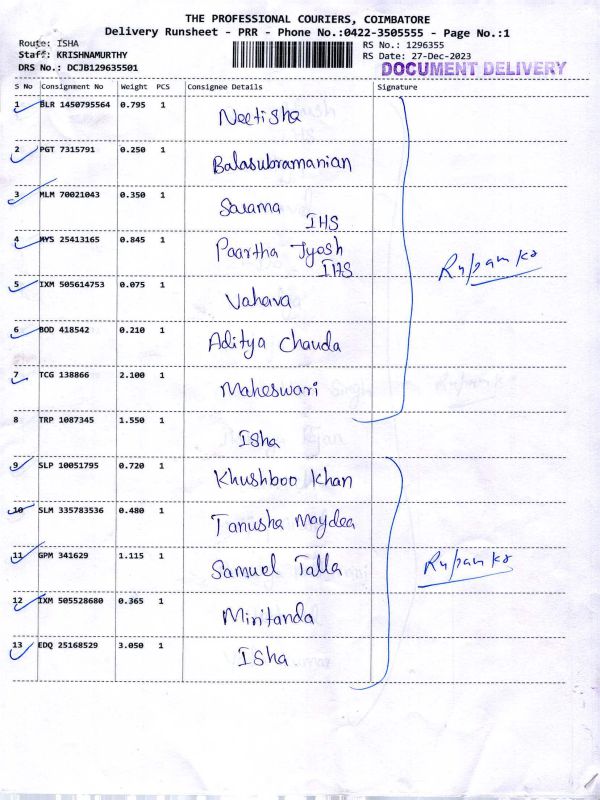 THE PROFESSIONAL COURIERS, COIMBATORE
Delivery Runsheet - PRR - Phone No.:0422-3505555 - Page No.:1
Route: ISHA
RS No.: 1296355
Staff: KRISHNAMURTHY
RS Date: 27-Dec-2023
DRS No.: DCJB129635501
DOCUMENT DELIVERY
S No Consignment No Weight PCS Consignee Details Signature
1 BLR 1450795564 0.795 1 Neetisha
2 PGT 7315791 0.250 1 Balasubramanian
3 MLM 70021043 0.350 1 Sarama
IHS
4 MYS 25413165 0.845 1 Paartha Jyosh
IHS
5 IXM 505614753 0.075 1 Vahava
6 BOD 418542 0.210 1 Aditya Chauda
7 TCG 138866 2.100 1 Maheswari
8 TRP 1087345 1.550 1 Isha
9 SLP 10051795 0.720 1 Khushboo Khan
10 SLM 335783536 0.480 1 Tanusha Maydea
11 GPM 341629 1.115 1 Samuel Talla
12 IXM 505528680 0.365 1 Miritanda
13 EDQ 25168529 3.050 1 Isha